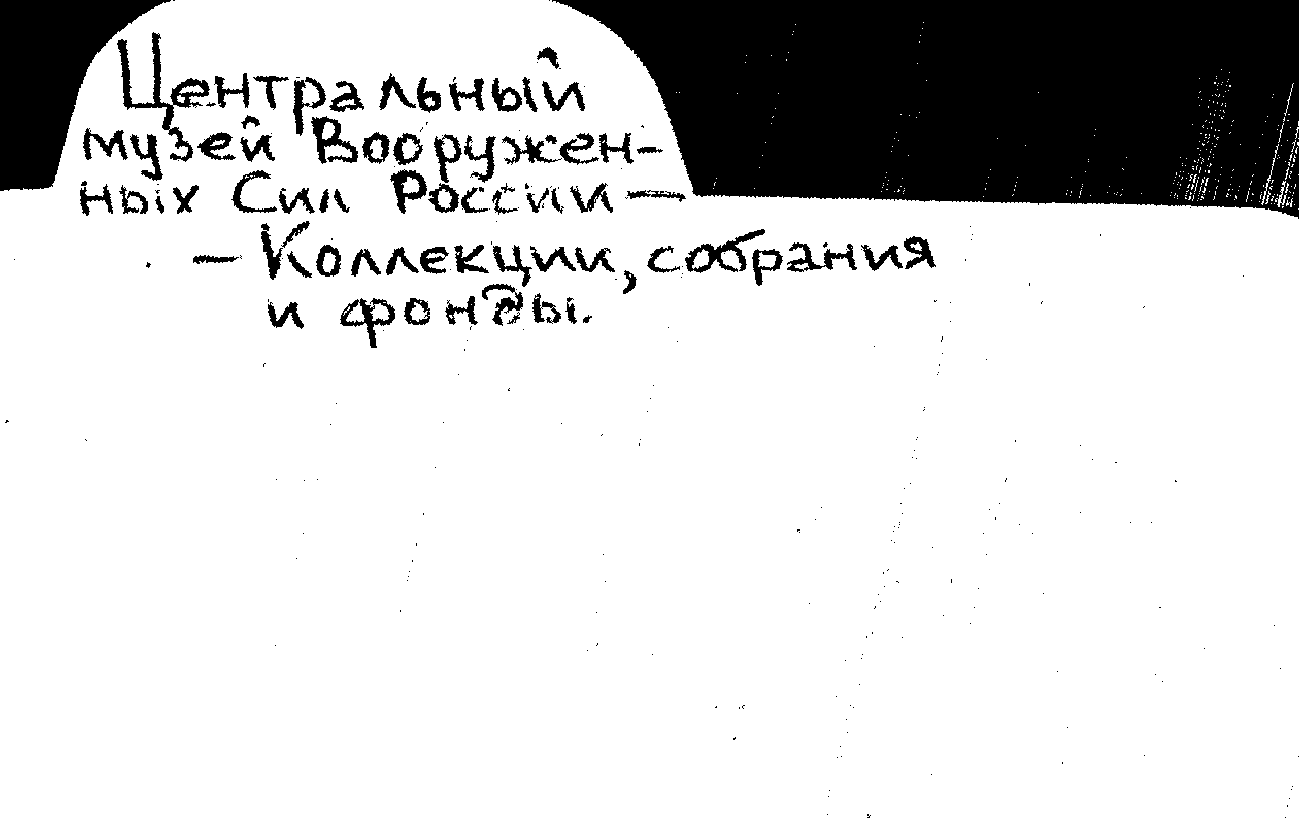 Центральный
музей Вооружен-
ных Сил России —
— Коллекции, собрания
и фонды.